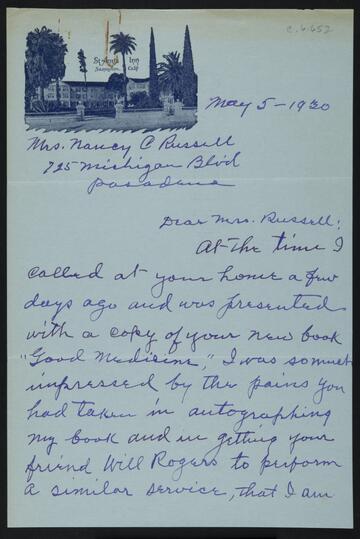 C.6.652
St. Ann's Inn
Santa Ana, Calif
May 5-1930
Mrs. Nancy C Russell
725 Michigan Blvd
Pasadena
Dear Mrs. Russell:
At the time I
called at your home a few
days ago and was presented
with a copy of your new book
"Good Medicine," I was so much
impressed by the pains you
had taken in autographing
my book and in getting your
friend Will Rogers to perform
a similar service, that I am